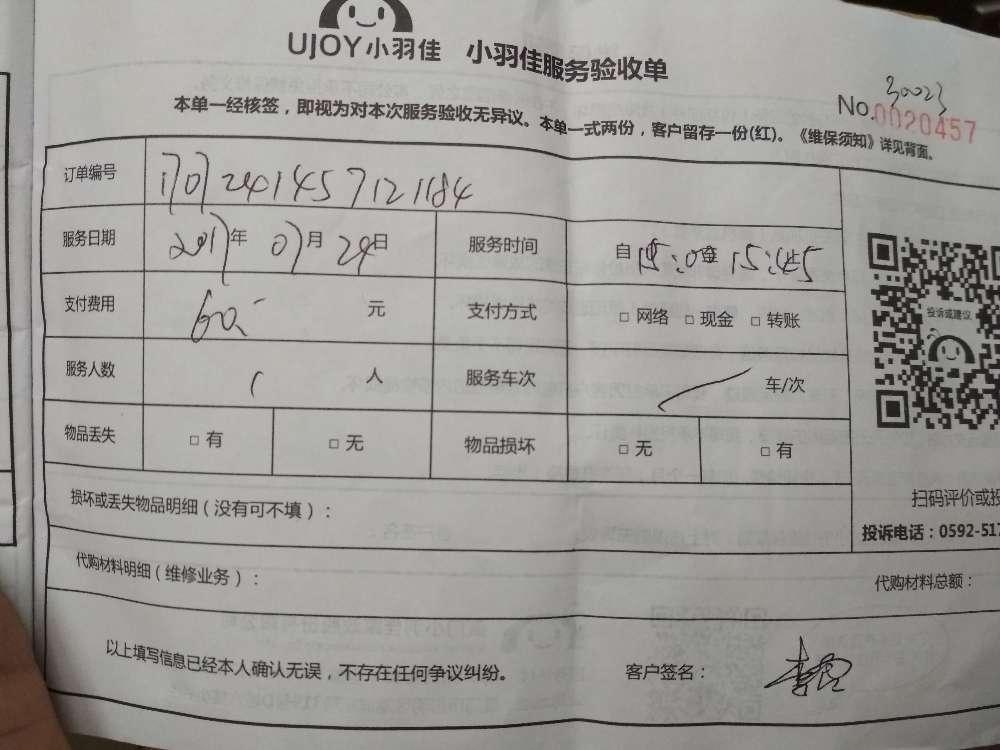 UJOY小羽佳 小羽佳服务验收单
30023
No.0020457
本单一经核签，即视为对本次服务验收无异议。本单一式两份，客户留存一份(红)。《维保须知》详见背面。
订单编号 1707241457121184
服务日期 2017年 07月 24日 服务时间 自 15:0 至 15:45
支付费用 60 元 支付方式 □ 网络 □ 现金 □ 转账
服务人数 1 人 服务车次 车/次
物品丢失 □ 有 □ 无 物品损坏 □ 无 □ 有
损坏或丢失物品明细（没有可不填）：
代购材料明细（维修业务）： 代购材料总额：
以上填写信息已经本人确认无误，不存在任何争议纠纷。 客户签名：
投诉或建议
扫码评价或投
投诉电话：0592-517